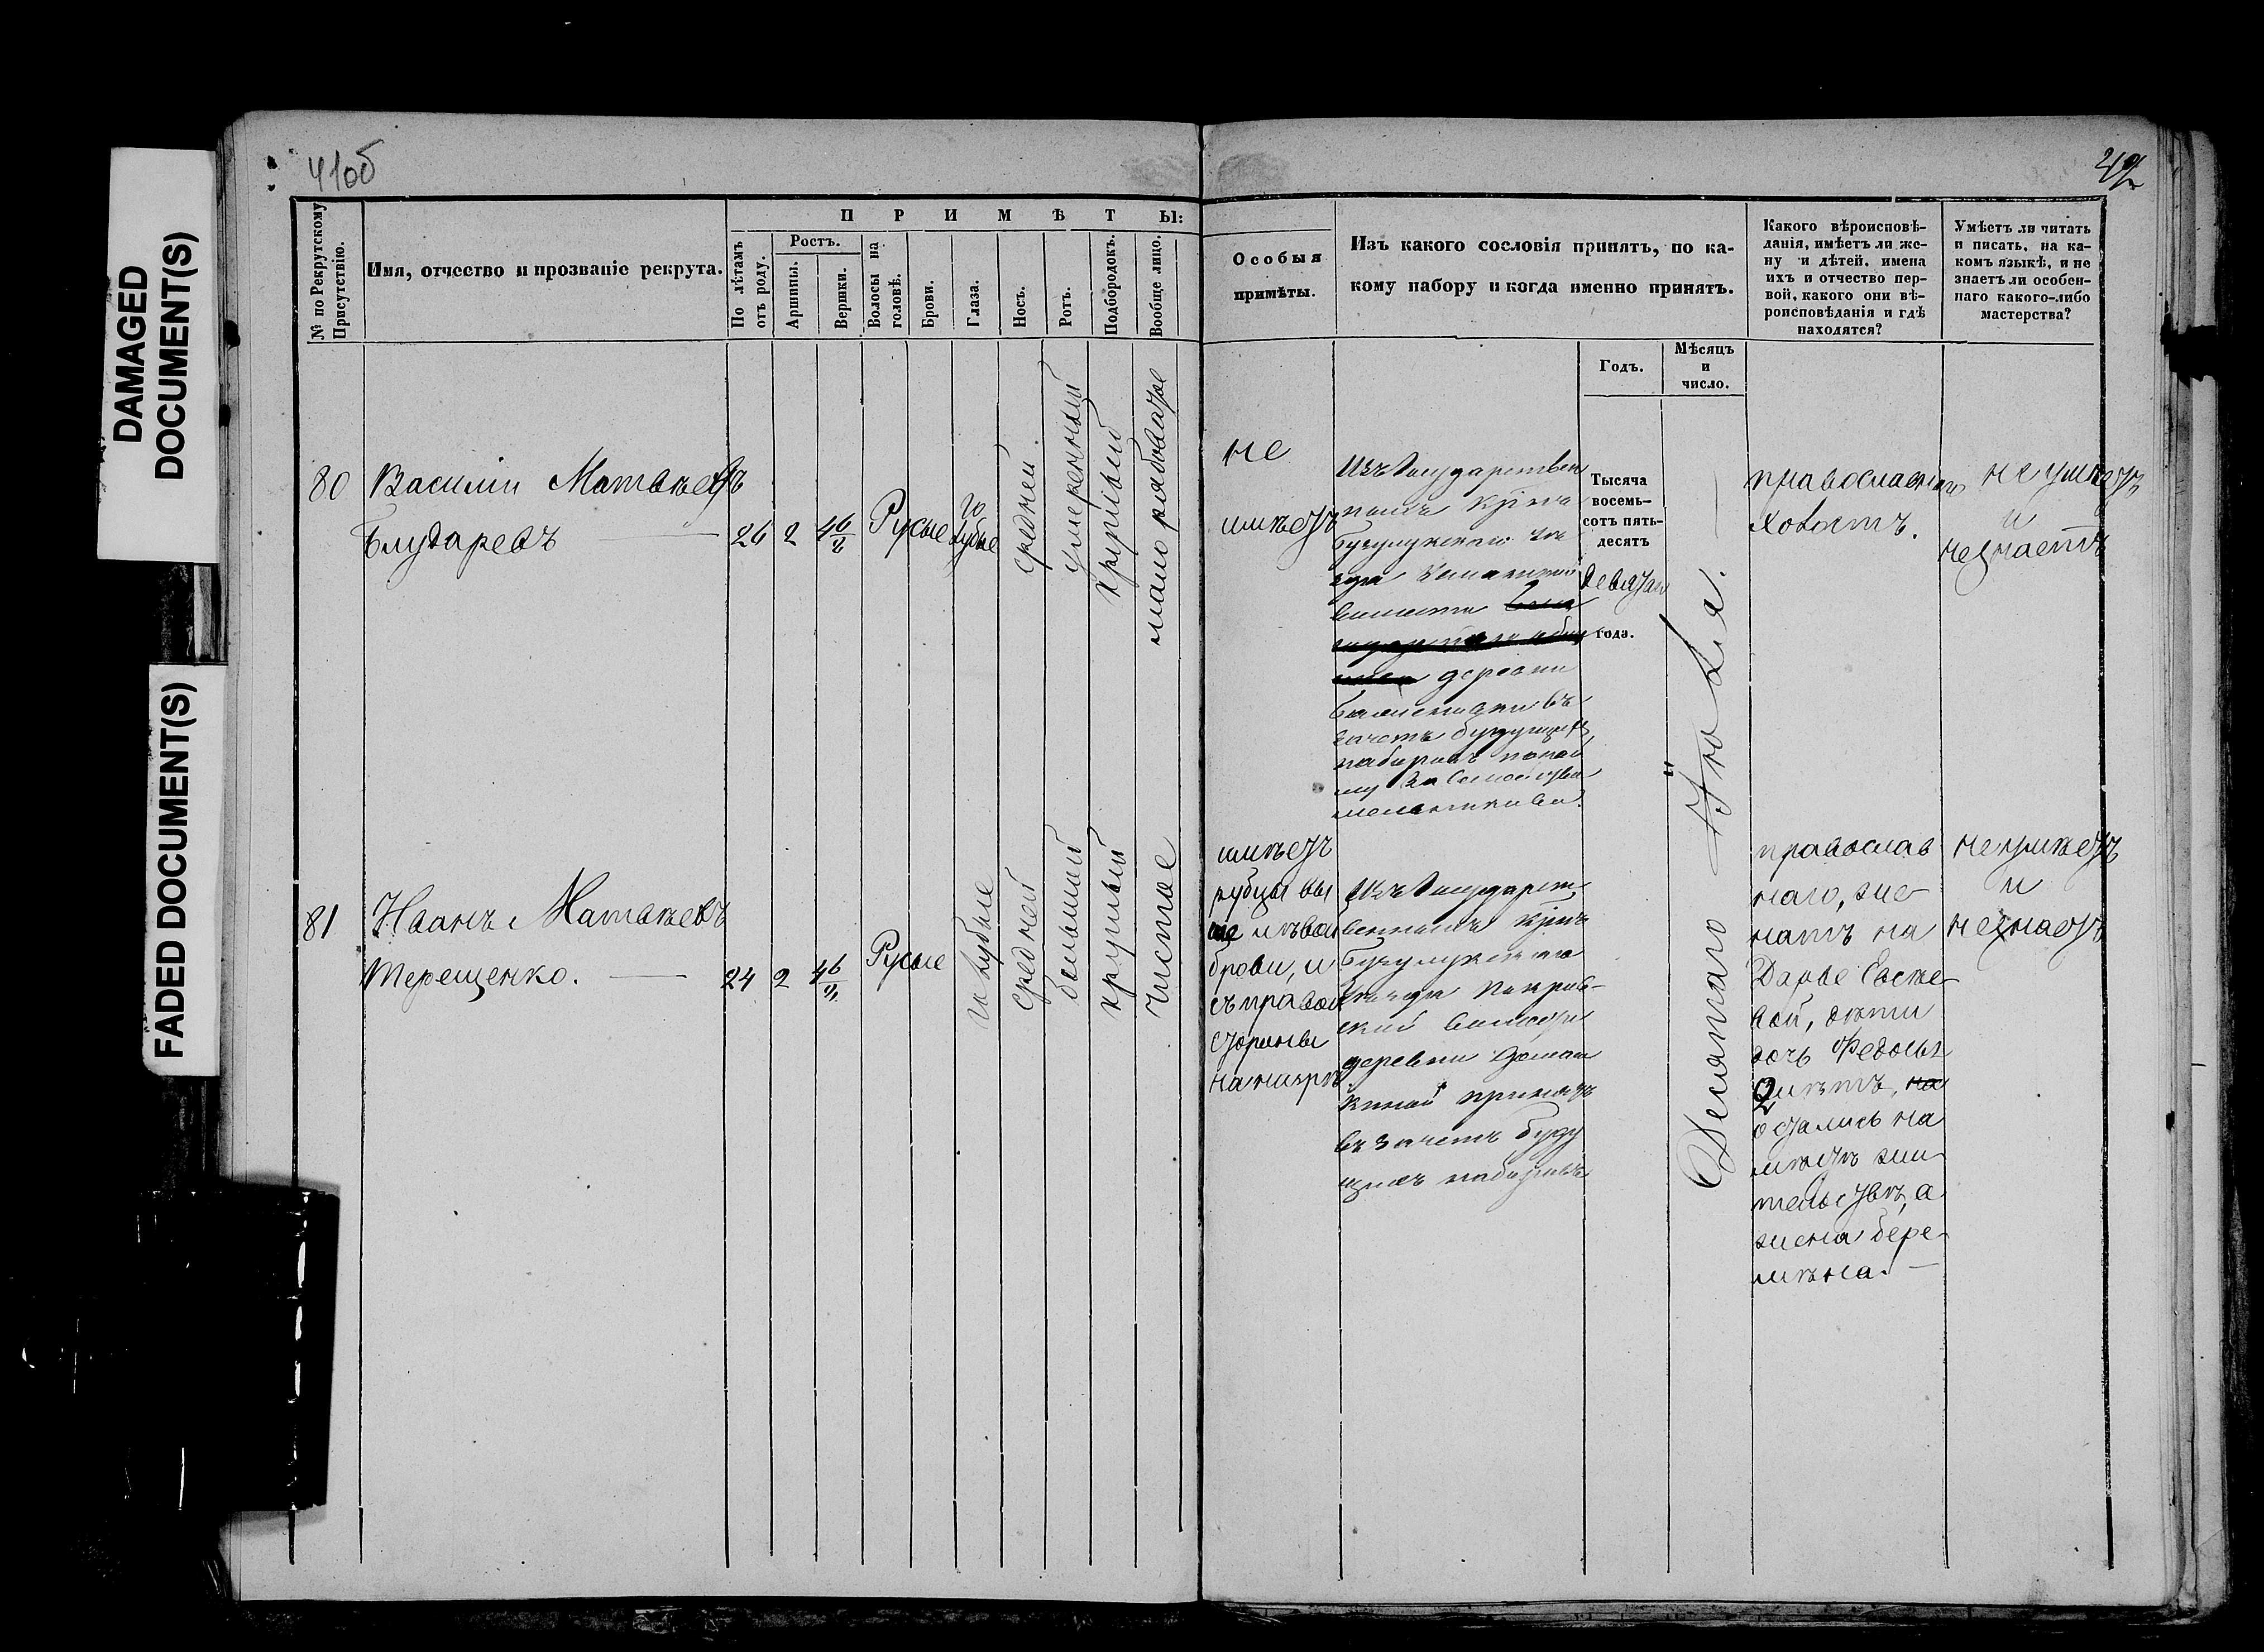 DAMAGED
DOCUMENT(S)
FADED DOCUMENT(S)
41об
42
№ по Рекрутскому
Присутствію.
Имя, отчество и прозваніе рекрута.
ПРИМѢТЫ:
По лѣтамъ
отъ роду.
Ростъ.
Аршины.
Вершки.
Волосы на
головѣ.
Брови.
Глаза.
Носъ.
Ротъ.
Подбородокъ.
Вообще лицо.
Особыя
примѣты.
Изъ какого сословія принятъ, по ка-
кому набору и когда именно принятъ.
Годъ.
Мѣсяцъ
и
число.
Какого вѣроисповѣ-
данія, имѣетъ ли же-
ну и дѣтей, имена
ихъ и отчество пер-
вой, какого они вѣ-
роисповѣданія и гдѣ
находятся?
Умѣетъ ли читать
и писать, на ка-
комъ языкѣ, и не
знаетъ ли особен-
наго какого-либо
мастерства?
80
Василій Матвѣевъ
Блударевъ
26
2
4
Русые
го
лубые
средней
умеренный
круглый
мало рябоватое
не
имѣетъ
Изъ Государствен
ныхъ
Бузулукскаго уѣ
зда
волости
деревни
въ
зачетъ будущихъ
наборовъ
Тысяча
восемь-
сотъ пять-
десятъ
девятаго
года.
Десятаго Іюля.
православнаго
холостъ.
не умѣетъ
и
незнаетъ
81
Иванъ Матвѣевъ
Терещенко.
24
2
4
Русые
голубые
средней
большій
круглый
чистое
имѣетъ
рубцы вы
ше лѣвой
брови, и
съ правой
стороны
Изъ Государст
венныхъ
Бузулукскаго
уѣзда Покров-
ской волости
деревни
принятъ
въ зачетъ буду
щихъ наборовъ
православ
наго, же-
натъ на
Дарье Евсѣе-
вой, дѣти
дочь Федосья
2 лѣтъ, на
остались на
мѣстѣ жи
тельствѣ, а
жена бере-
мѣна.
не умѣетъ
и
незнаетъ